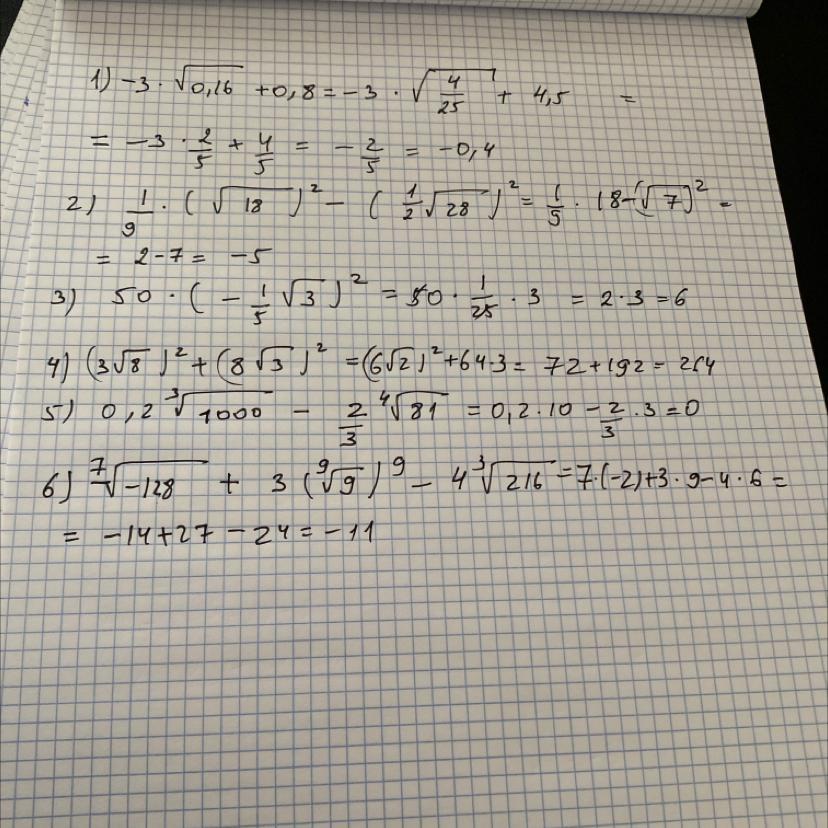 1) -3 · √0,16 + 0,8 = -3 · √(4/25) + 4,5 =
= -3 · 2/5 + 4/5 = -2/5 = -0,4
2) 1/9 · (√18)² - (1/2 √28)² = 1/9 · 18 - (√7)² =
= 2 - 7 = -5
3) 50 · (-1/5 √3)² = 50 · 1/25 · 3 = 2 · 3 = 6
4) (3√8)² + (8√3)² = (6√2)² + 64·3 = 72 + 192 = 264
5) 0,2 ∛1000 - 2/3 ∜81 = 0,2 · 10 - 2/3 · 3 = 0
6) ⁷√-128 + 3 (⁹√9)⁹ - 4 ∛216 = 7·(-2) + 3 · 9 - 4 · 6 =
= -14 + 27 - 24 = -11